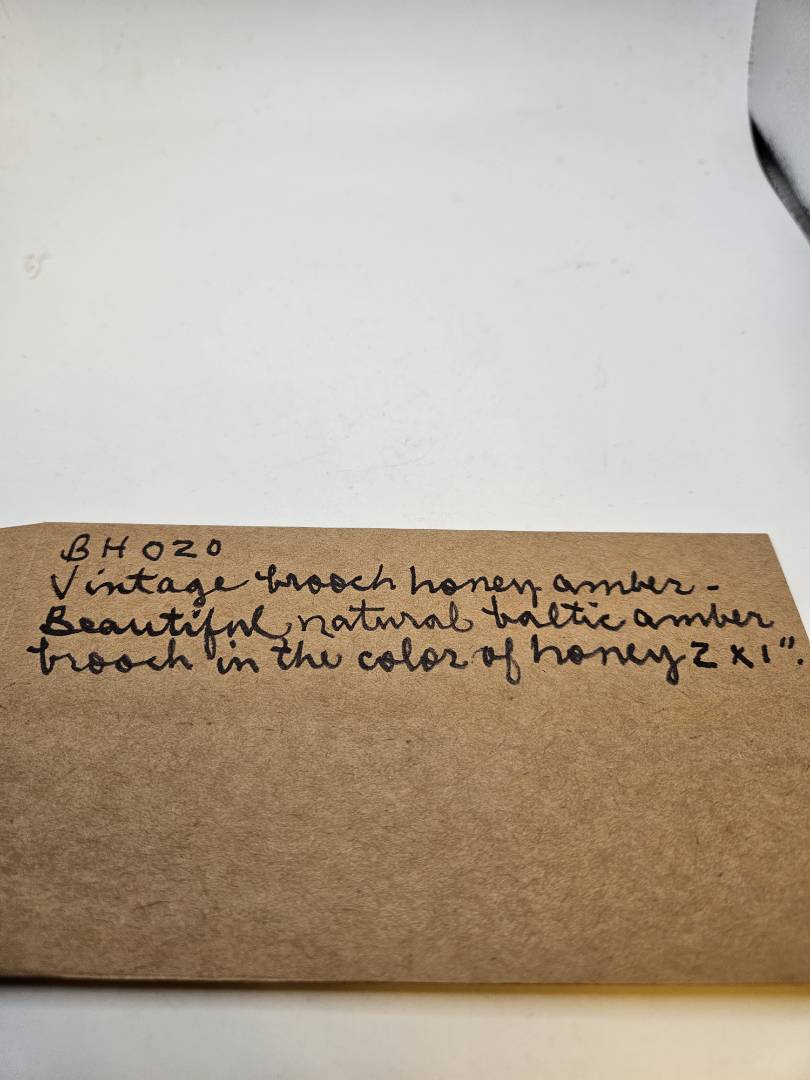 BH020
Vintage brooch honey amber -
Beautiful natural baltic amber
brooch in the color of honey 2 x 1".